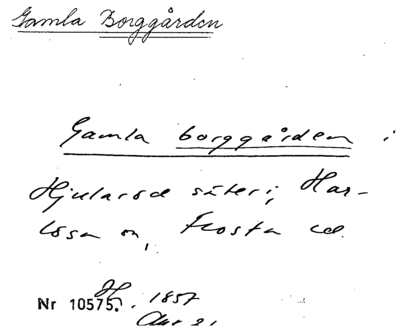 Gamla Borggården
Gamla borggården i
Hjularöd säteri, Har-
lösa sn, Frosta hd.
Nr 10575. H. 1857